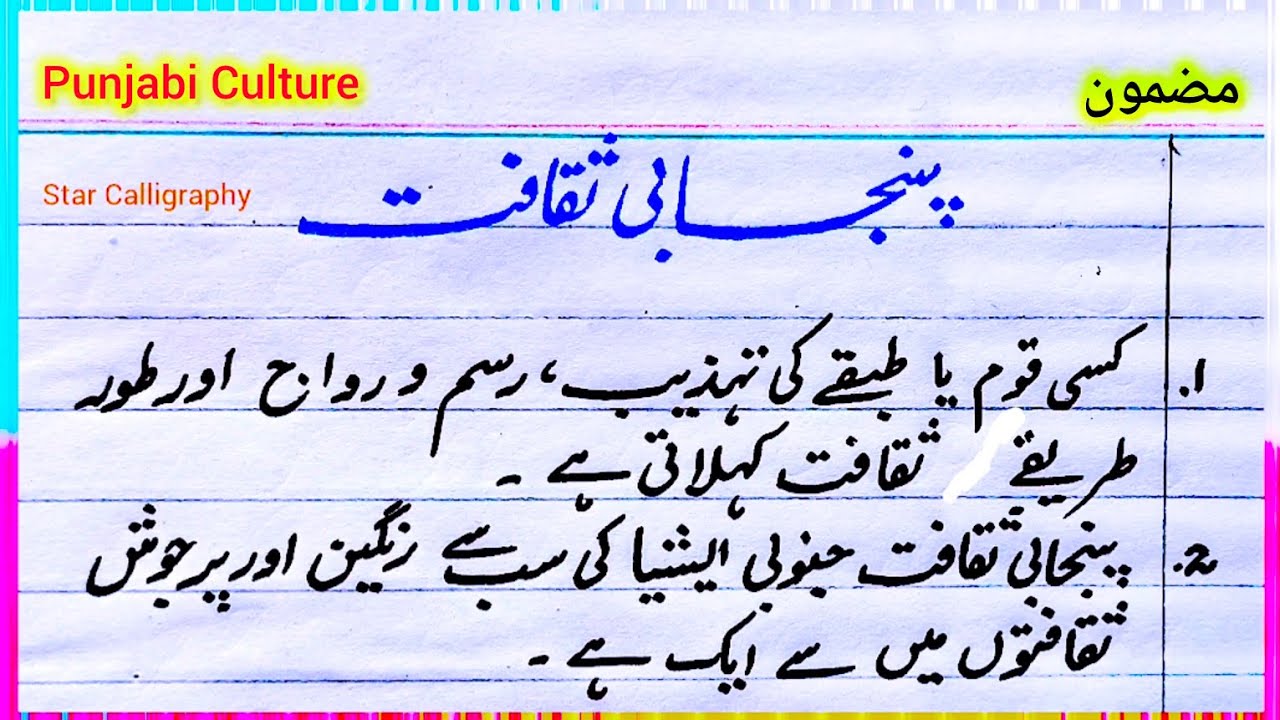 Punjabi Culture
مضمون
Star Calligraphy
پنجابی ثقافت
1. کسی قوم یا طبقے کی تہذیب، رسم و رواج اور طور
طریقے ثقافت کہلاتی ہے ۔
2. پنجابی ثقافت جنوبی ایشیا کی سب سے رنگین اور پرجوش
ثقافتوں میں سے ایک ہے ۔